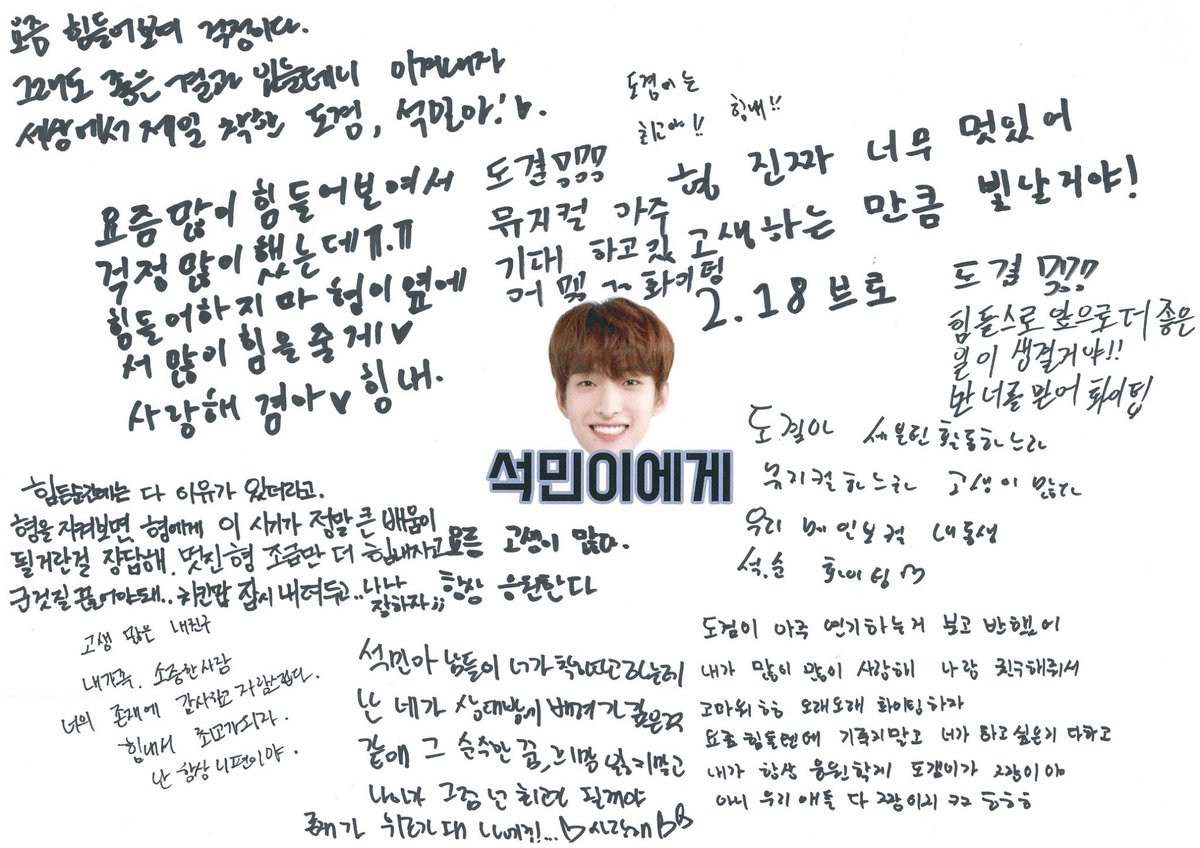 요즘 힘들어보여 걱정이다.
그래도 좋은 결과 있을테니 이겨내자
세상에서 제일 착한 도겸, 석민아!
도겸이는
최고야!! 힘내!!
요즘 많이 힘들어보여서
걱정 많이 했는데ㅠ.ㅠ
힘들어하지마 형이 옆에
서 많이 힘을 줄게♥
사랑해 겸아♥ 힘내.
도겸
뮤지컬 아주
기대 하고있
어 화이팅
형 진짜 너무 멋있어
고생하는 만큼 빛날거야!
2.18 브로
도겸
힘들수록 앞으로 더 좋은
일이 생길거야!!
난 너를 믿어 화이팅
석민이에게
도겸아 세븐틴 활동하느라
뮤지컬하느라 고생이 많다
우리 메인보컬 내동생
석.순 화이팅♡
힘든순간에는 다 이유가 있더라고.
형을 지켜보면, 형에게 이 시기가 정말 큰 배움이
될거란걸 장담해. 멋진형 조금만 더 힘내자고
군것질 끊어야돼.. 치킨팝 잠시 내려두고.. 나나
잘하자;;
요즘 고생이 많다.
항상 응원한다
고생 많은 내친구
내가족. 소중한사람
너의 존재에 감사하고 자랑스럽다.
힘내서 최고가되자.
난 항상 니편이야.
석민아 남들이 너가 착하다고 하는데
난 네가 상대방에 배려가 깊은것
같애 그 순수한 꿈, 잃지말고
나아가 그럼 넌 필꺼야
도겸이 아주 연기하는거 보고 반했어
내가 많이 많이 사랑해 나랑 친구해줘서
고마워 오래오래 화이팅하자
요즘 힘들텐데 기죽지말고 너가 하고싶은거 다하고
내가 항상 응원할게 도겸이가 짱이야
아니 우리 애들 다 짱이지 ㅋㅋ